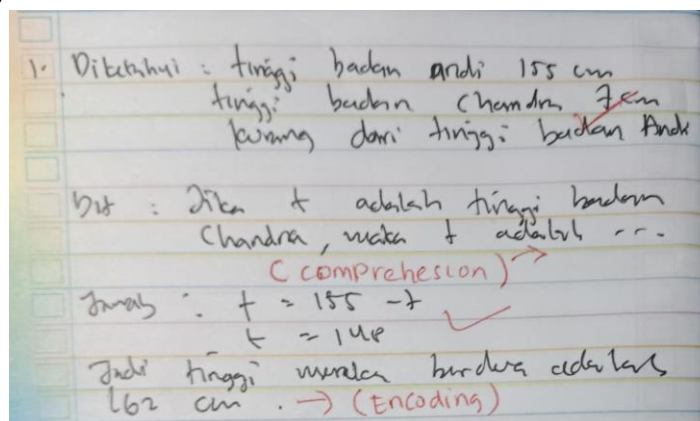 1. Diketahui : tinggi badan andi 155 cm
tinggi badan Chandra 7 cm
kurang dari tinggi badan Andi
Dit : Jika t adalah tinggi badan
Chandra, maka t adalah ...
(comprehesion) →
Jawab : t = 155 - 7
t = 148
Jadi tinggi mereka berdua adalah
162 cm . → (Encoding)